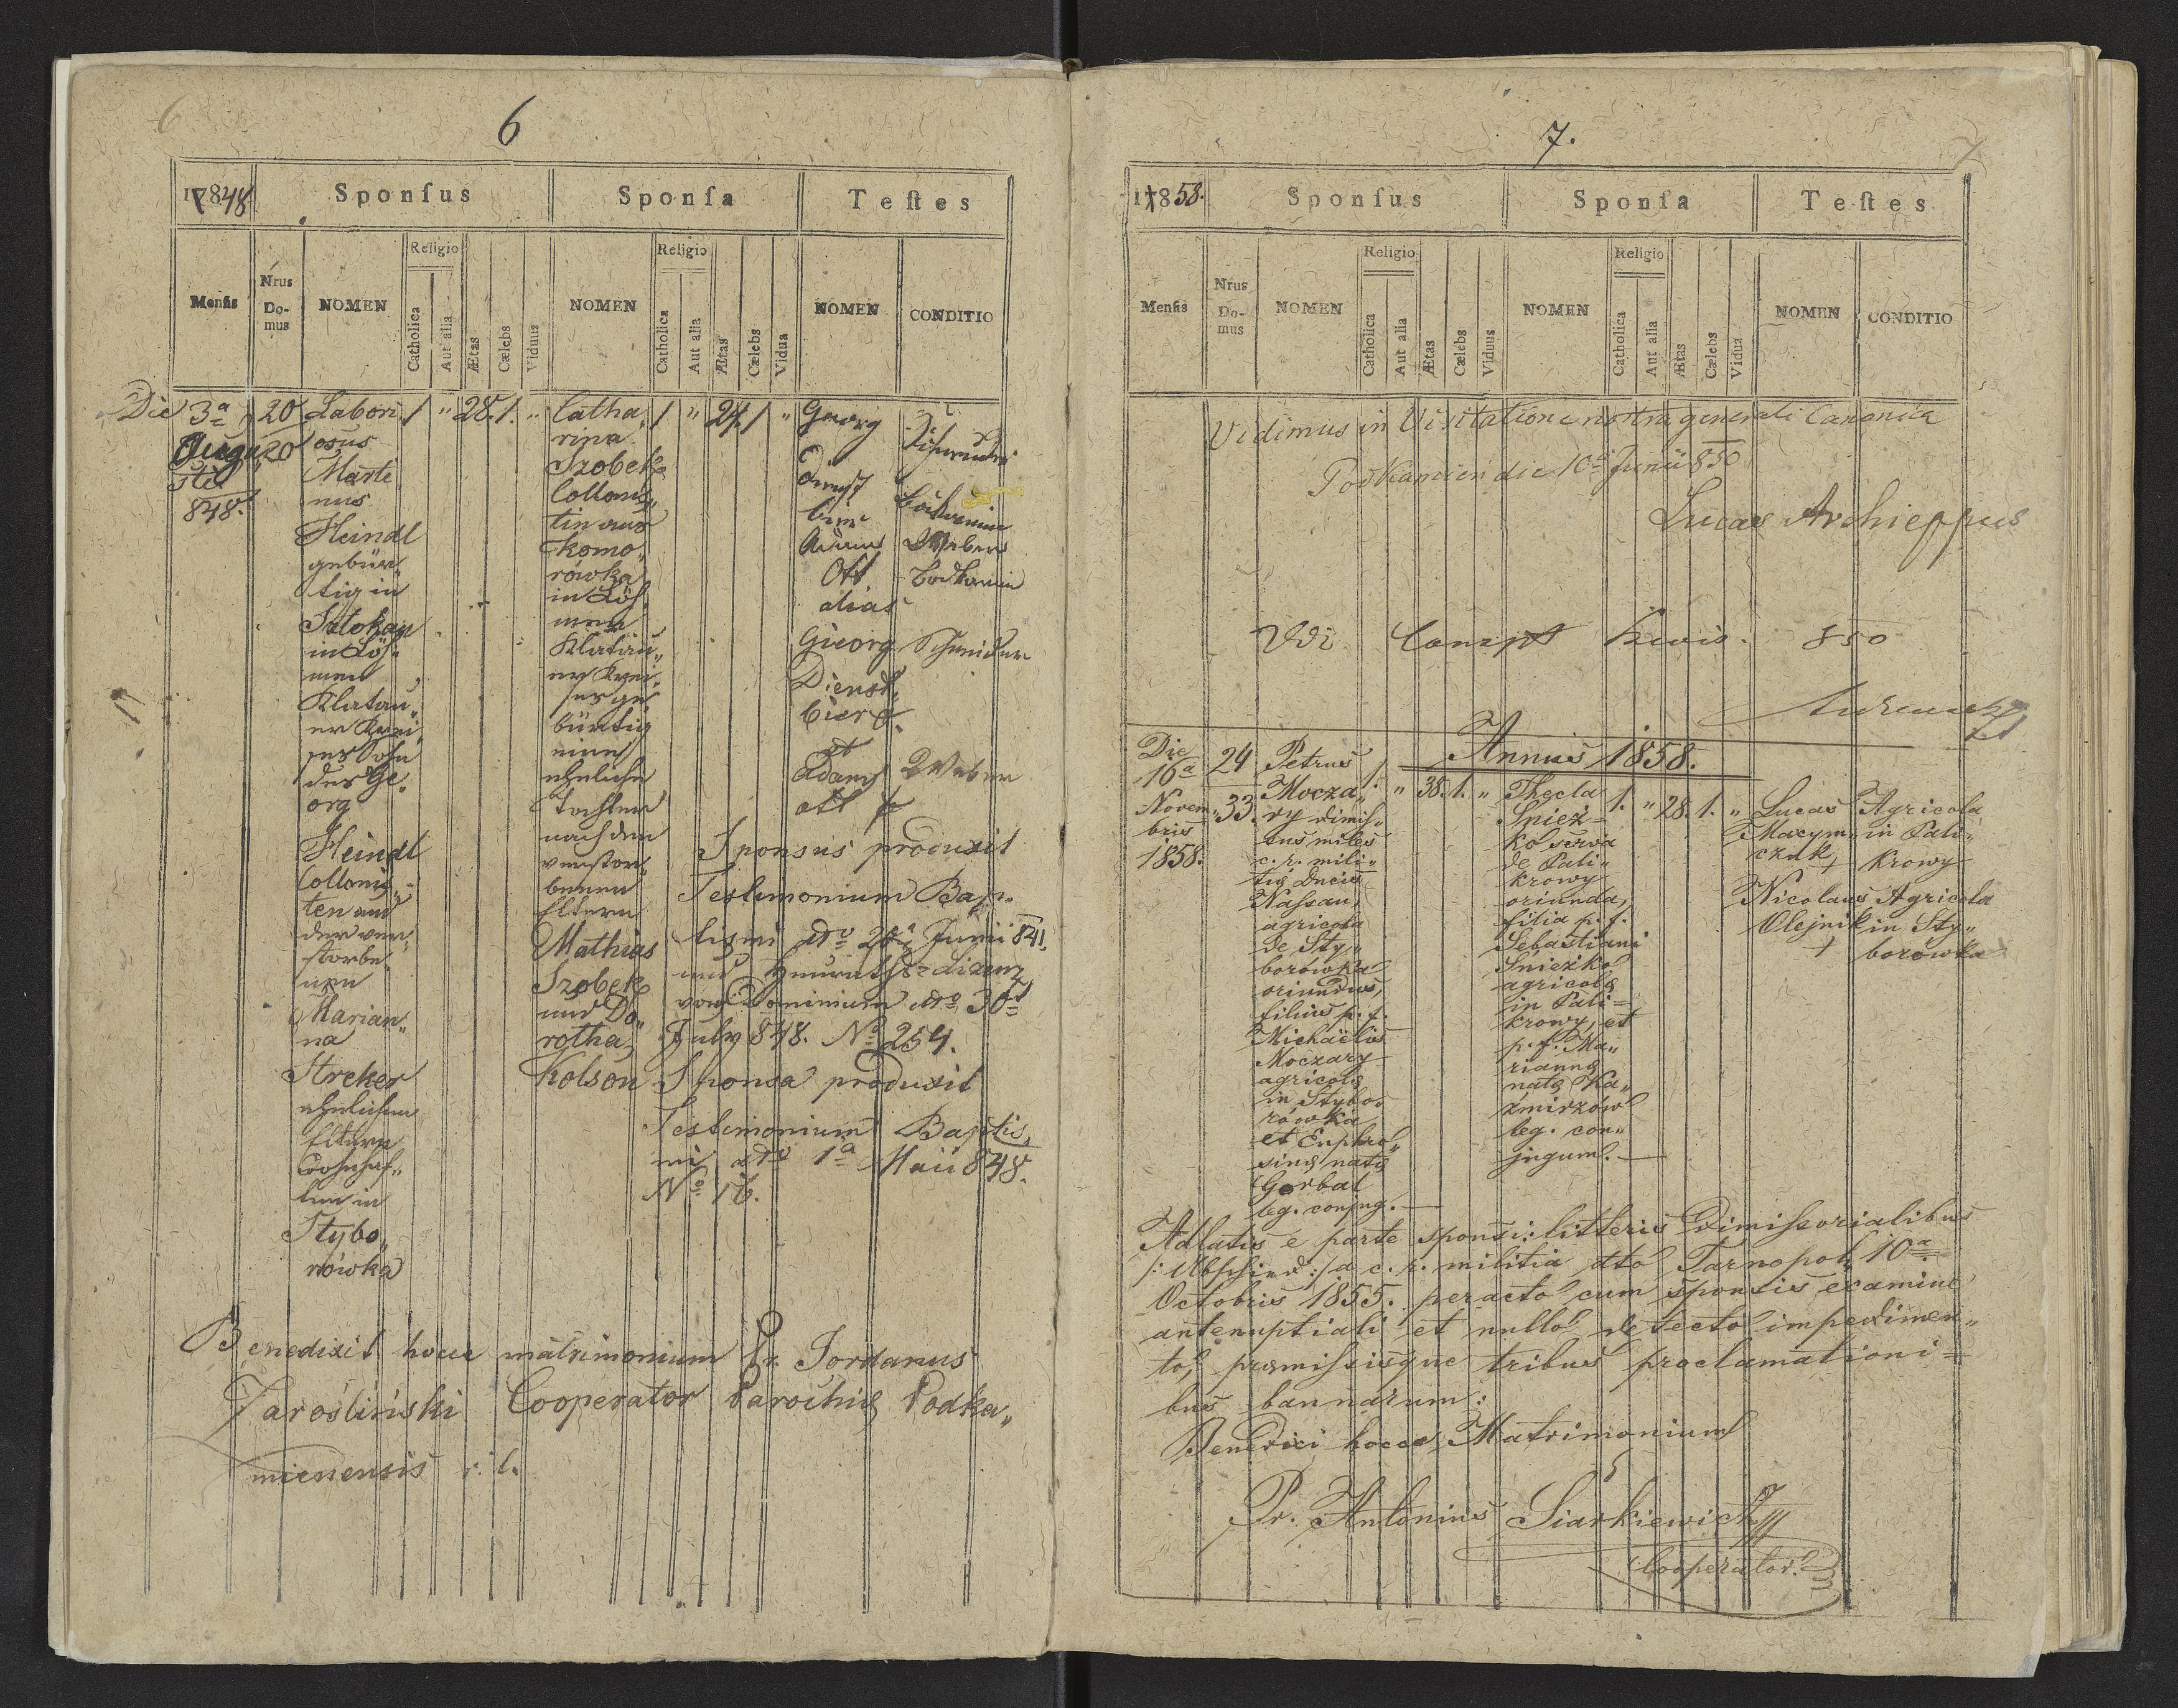 6
6
17848
Sponſus
Sponſa
Teſtes
Menſis
Nrus Domus
NOMEN
Religio
Catholica
Aut alia
Ætas
Cælebs
Viduus
NOMEN
Religio
Catholica
Aut alia
Ætas
Cælebs
Vidua
NOMEN
CONDITIO
Die 3ª
Augu
sti
848.
20
20
Labori
osus
Marti
nus
Heindl
gebür„
tig in
in Böh„
men
Klatau„
er Krei„
ses Sohn
des Ge„
org
Heindl
Collonis„
ten und
der ver„
storbe„
nen
Marian„
na
Streker
ehelichen
Eltern
wohnhaf„
ten in
Stybo„
rówka
1 " 28. 1. "
Catha„
rina
Szobek
Collonis„
tin aus
Komo„
rówka
in Böh„
men
Klatau„
er Krei„
ses ge„
bürtig
eine
eheliche
Tochter
nach den
verstor„
benen
Eltern
Mathias
Szobek
und Do„
rotha
Kolson
1 " 24. 1 "
Georg
Dienst
bier
Adam
Ott
alias
Georg
Dienst„
bier
et
Adam
ott
Podkamin
Weber
Podkamin
Schneider
Weber
Sponsus produxit
Testimonium Bap„
tismi dto Junii 841.
und Heuraths-Lizenz
vom Dominium dto 30t
July 848. No 254.
Sponsa produxit
Testimonium Baptis„
mi dto 1ª Maii 848.
No 16.
Benedixit hocce matrimonium Fr. Jordanus
Jarośliński Cooperator Parochiæ Podka„
mienensis r. l.
7.
7
17858.
Sponſus
Sponſa
Teſtes
Menſis
Nrus Domus
NOMEN
Religio
Catholica
Aut alia
Ætas
Cælebs
Viduus
NOMEN
Religio
Catholica
Aut alia
Ætas
Cælebs
Vidua
NOMEN
CONDITIO
Vidimus in Visitatione nostra generali Canonica
Podkamień die 10ª Junii 850
Lucas Archieppus
Vdi 850
Annus 1858.
Die
16ª
Novem„
bris
1858.
24
33.
Petrus
Mocza„
ry dimis„
sus miles
c. r. mili„
tiæ Ducis
Nassau,
agricola
de Sty„
borówka
oriundus,
filius p. f.
Michaëlis
Moczary
agricolæ
in Stybo„
rówka
et Euphro„
sinæ natæ
Gorbal
leg. conjug.
1. " 38. 1. "
Thecla
Śniez=
ko serva
de Pali„
krowy
oriunda,
filia p. f.
Sebastiani
Śnieżko
agricolæ
in Pali=
krowy, et
p. f. Ma„
riannæ
natæ Ka„
źmirzów
leg. con„
jugum.
1. " 28. 1. "
Lucas
Maxym„
czuk
Nicolaus
Olejnik
+
Agricola
in Pali„
krowy
Agricola
in Sty„
borówka
Adlatis e parte sponsi: litteris Dimissorialibus
/: Abschied :/ a c. r. militia dto Tarnopol 10ª
Octobris 1855. peracto cum sponsis examine
antenuptiali et nullo detecto impedimen„
to, præmissisque tribus proclamationi=
bus bannarum:
Benedixi hocce Matrimonium
Pr. Antonius Siarkiewicz
Cooperator.